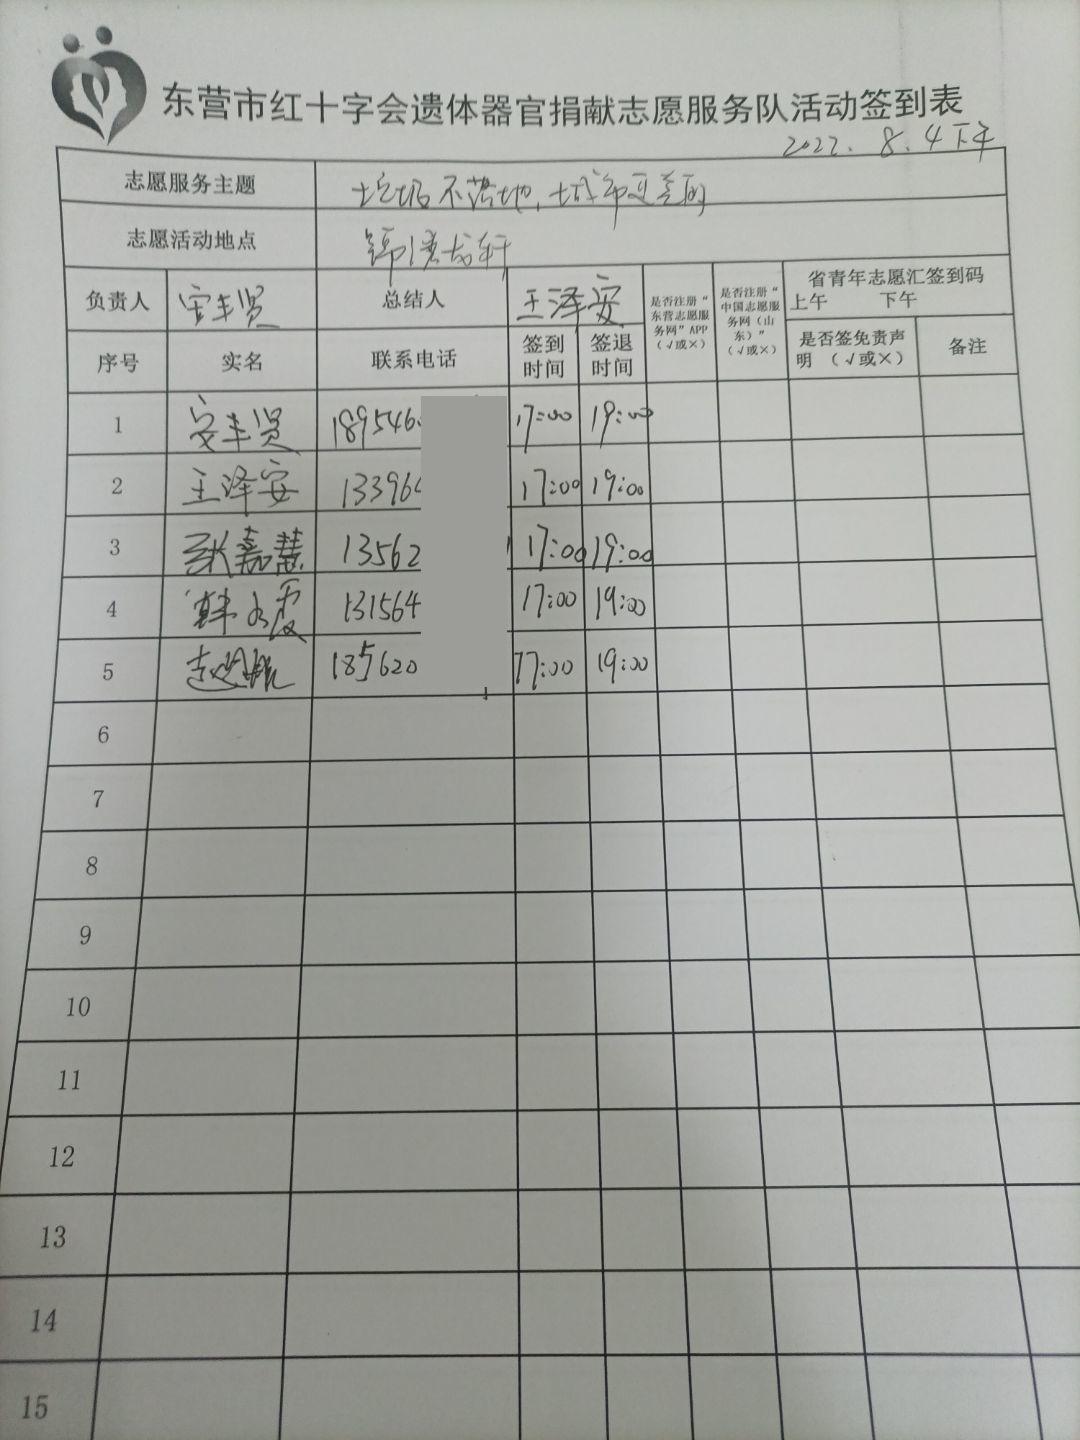 东营市红十字会遗体器官捐献志愿服务队活动签到表
2022.8.4下午
志愿服务主题 垃圾不落地,城市更美丽
志愿活动地点
负责人 安丰贤 总结人 王泽安 是否注册“东营志愿服务网”APP(√或×) 是否注册“中国志愿服务网(山东)”(√或×) 省青年志愿汇签到码 上午 下午
序号 实名 联系电话 签到时间 签退时间 是否签免责声明 (√或×) 备注
1 安丰贤 1895460 17:00 19:00
2 王泽安 133964 17:00 19:00
3 张嘉慧 13562 17:00 19:00
4 韩水霞 131564 17:00 19:00
5 185620 17:00 19:00
6
7
8
9
10
11
12
13
14
15